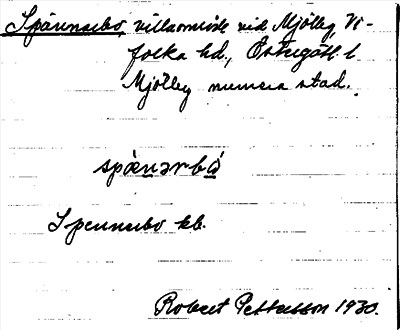 Spånnarbo, villaområde vid Mjölby, Vi-
folka hd., Östergötl. l
Mjölby numera stad.
spånarbo
Spennarbo kb.
Robert Pettersson 1930.